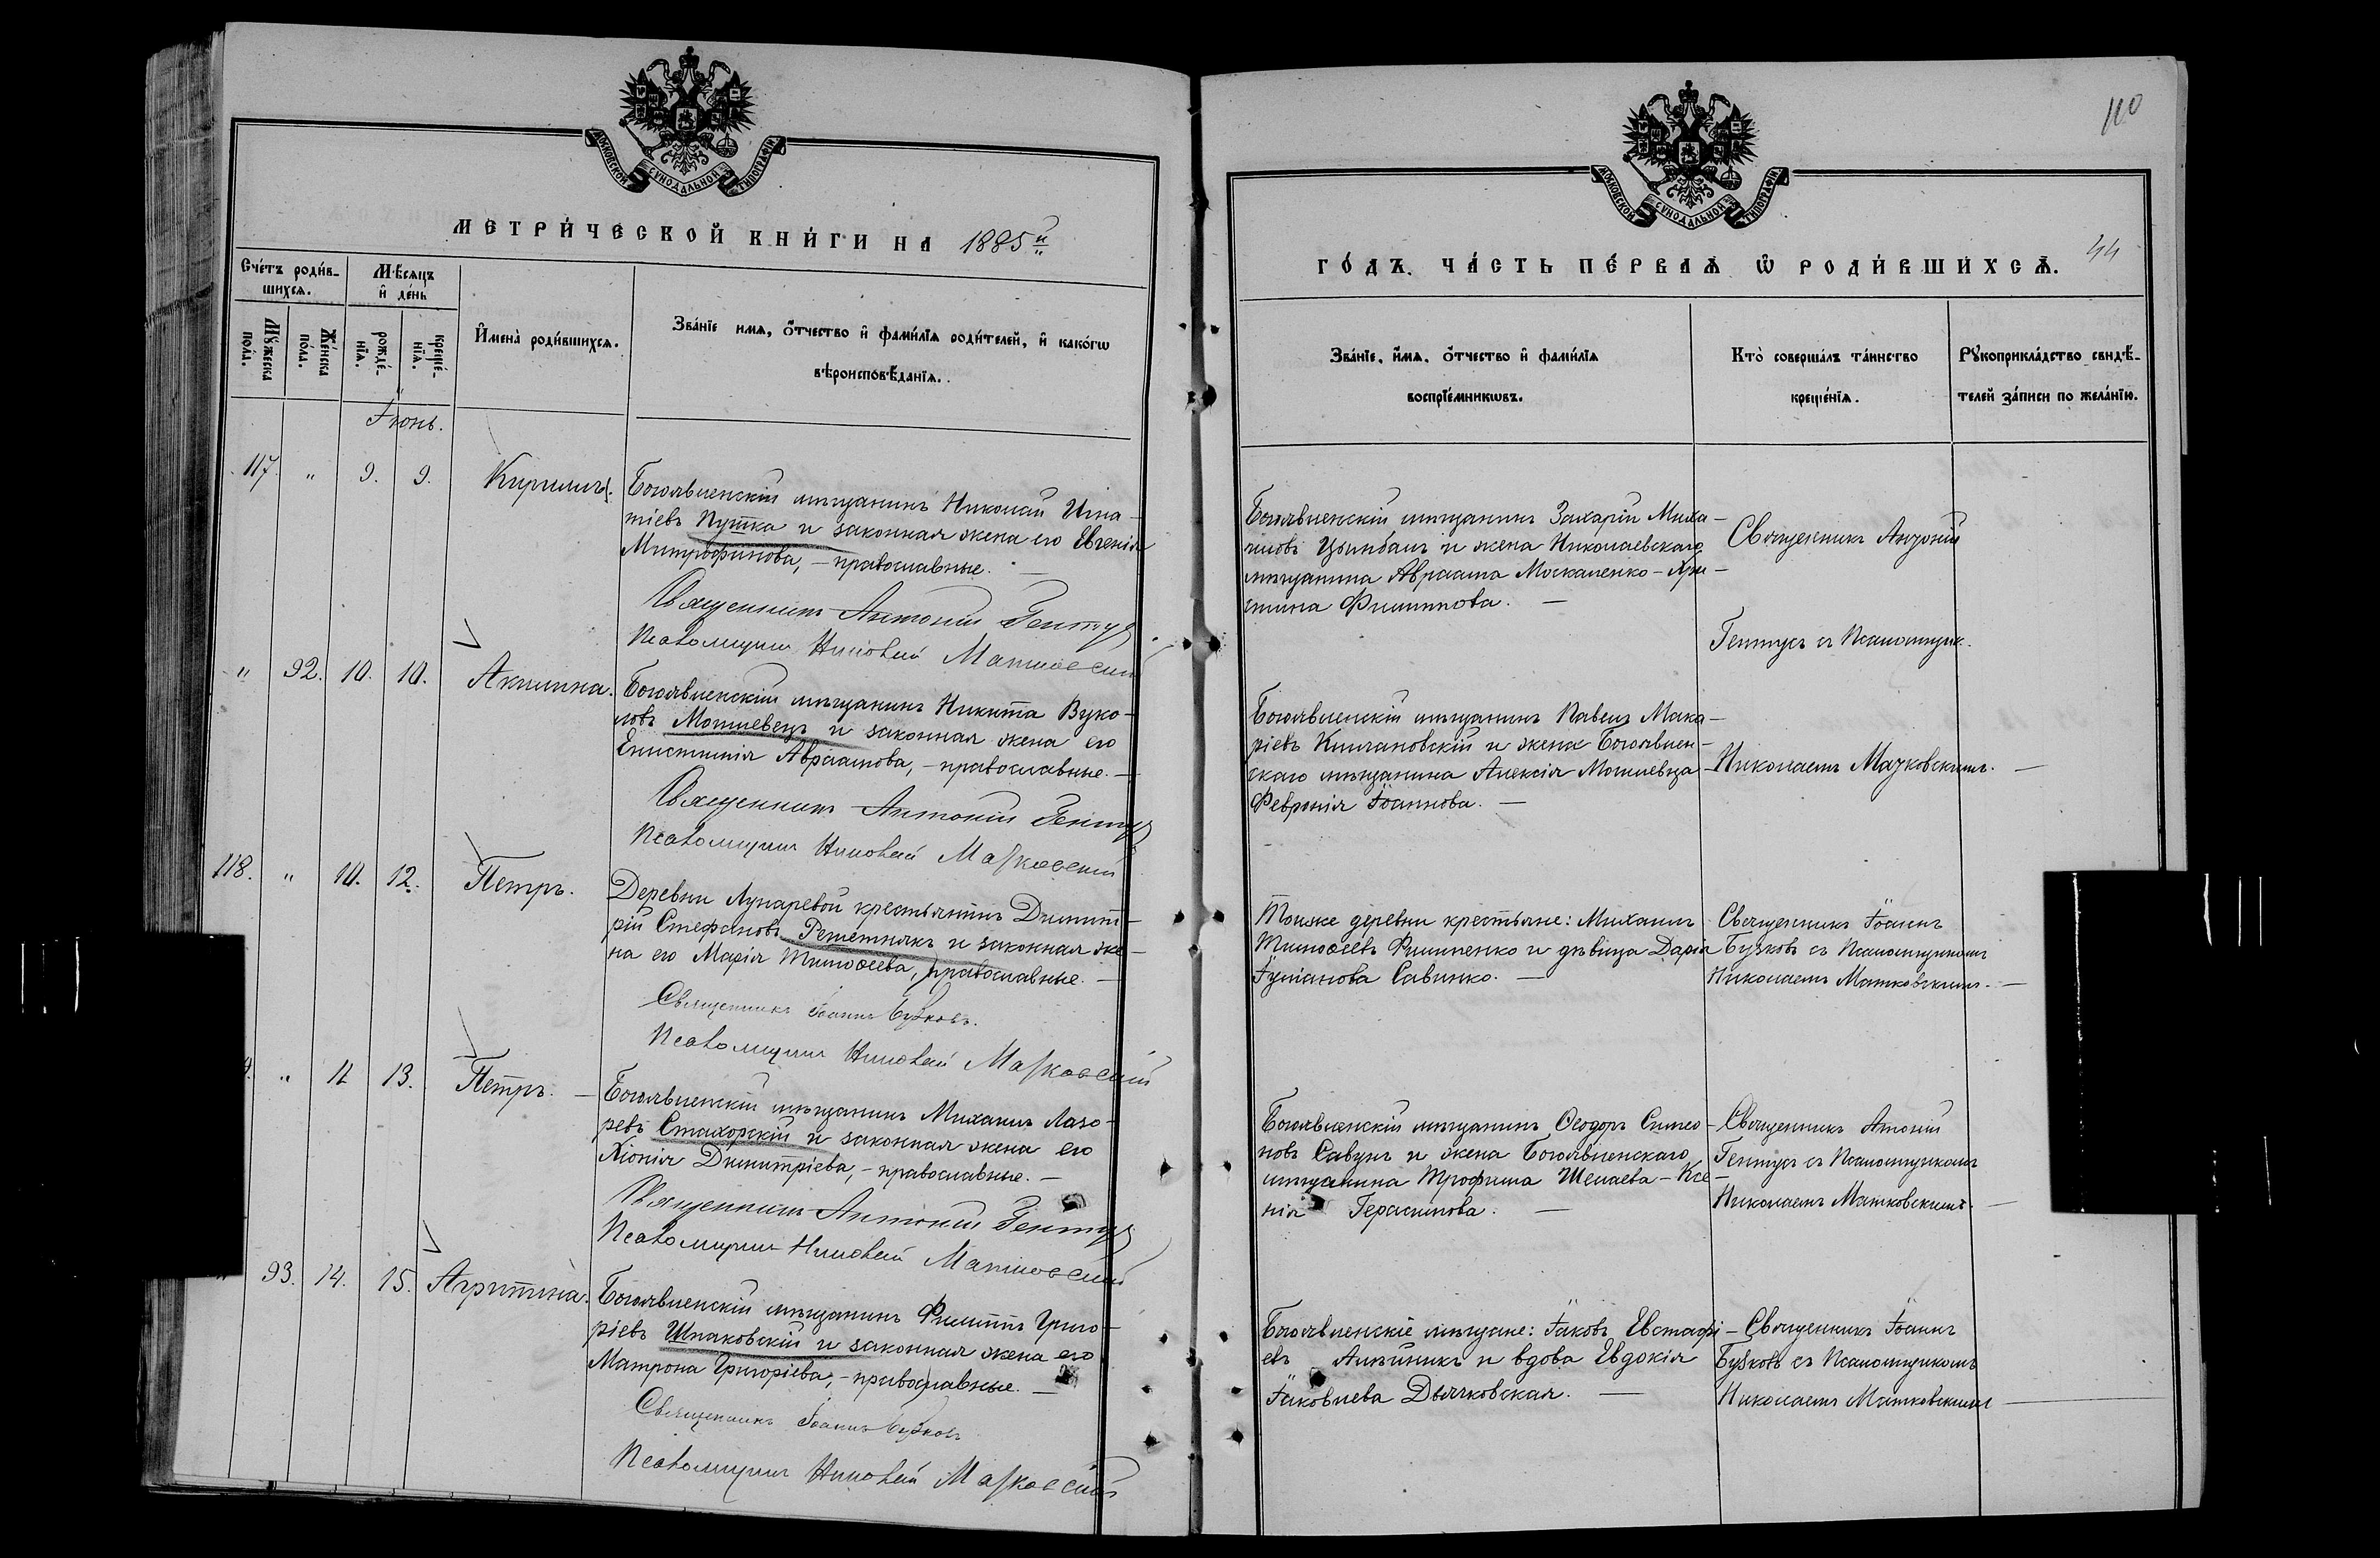 МОСКОВСКОЙ СУНОДАЛЬНОЙ ТИПОГРАФІИ
МЕТРИ́ЧЕСКОЙ КНИ́ГИ НА 1885й
Сче́тъ роди́в-
шихсѧ.
Мѣ́сѧцъ
и҆ де́нь
Мꙋ́жеска
по́ла.
Же́нска
по́ла.
рожде́-
нїѧ.
креще́-
нїѧ.
И҆мена̀ роди́вшихсѧ.
Зва́нїе имѧ, о҆́тчество и҆ фами́лїѧ роди́телей, и҆ како́гѡ
вѣроисповѣ́данїѧ.
Іюнь.
117. " 9. 9. Кириллъ.
Богоявленскій мѣщанинъ Николай Игна-
тіевъ Пушка и законная жена его Евгенія
Митрофанова, - православные. -
Священникъ Антоній Гентуз
Псаломщикъ Николай Матковскій
" 92. 10. 10. Акилина.
Богоявленскій мѣщанинъ Никита Вуко-
ловъ Могилевецъ и законная жена его
Епистимія Авраамова, - православные. -
Священникъ Антоній Гентуз
Псаломщикъ Николай Матковскій
118. " 10. 12. Петръ.
Деревни Лупаревой крестьянинъ Димит-
рій Стефановъ Решетнякъ и законная же-
на его Марія Тимоѳеева, православные. -
Священникъ Іоаннъ Бузковъ.
Псаломщикъ Николай Матковскій
" 11 13. Петръ. -
Богоявленскій мѣщанинъ Михаилъ Лазо-
ревъ Стахорскій и законная жена его
Хіонія Димитріева, - православные. -
Священникъ Антоній Гентуз
Псаломщикъ Николай Матковскій
" 93. 14. 15. Агрипина.
Богоявленскій мѣщанинъ Филиппъ Григо-
ріевъ Шпаковскій и законная жена его
Матрона Григоріева, - православные. -
Священникъ Іоаннъ Бузковъ
Псаломщикъ Николай Матковскій
110
МОСКОВСКОЙ СУНОДАЛЬНОЙ ТИПОГРАФІИ
ГО́ДЪ. ЧА́СТЬ ПЕ́РВАѦ Ѡ҆ РОДИ́ВШИХСѦ. 44
Зва́нїе, и҆́мѧ, о҆́тчество и҆ фами́лїѧ
воспрїе́мникѡвъ.
Кто̀ соверша́лъ та́инство
креще́нїѧ.
Рꙋкоприкла́дство свидѣ́-
телей за́писи по жела́нїю.
Богоявленскій мѣщанинъ Захарій Миха-
иловъ Цымбалъ и жена Николаевскаго
мѣщанина Авраама Москаленко - Хри-
стина Филиппова. -
Священникъ Антоній
Гентусъ съ Псаломщик.
Богоявленскій мѣщанинъ Павелъ Мака-
ріевъ и жена Богоявлен-
скаго мѣщанина Алексія Могилевца
Февронія Іоаннова. -
Николаемъ Матковскимъ. -
Тойже деревни крестьяне: Михаилъ
Тимоѳеевъ Филипенко и дѣвица Дарія
Іуліанова Савинко. -
Священникъ Іоаннъ
Бузковъ съ Псаломщикомъ
Николаемъ Матковскимъ. -
Богоявленскій мѣщанинъ Ѳеодоръ Симео-
новъ Савунъ и жена Богоявленскаго
мѣщанина Трофима Шелаева - Ксе-
нія Герасимова. -
Священникъ Антоній
Гентусъ съ Псаломщикомъ
Николаемъ Матковскимъ. -
Богоявленскіе мѣщане: Іаковъ Евстафі-
евъ и вдова Евдокія
Іаковлева Дьячковская. -
Священникъ Іоаннъ
Бузковъ съ Псаломщикомъ
Николаемъ Матковскимъ